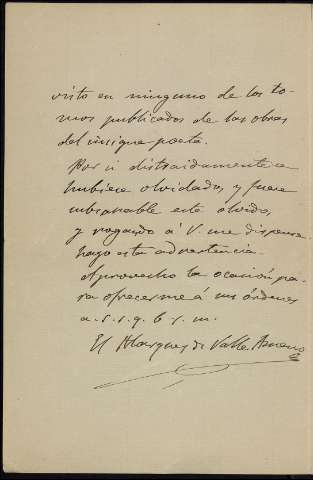 visto en ninguno de los to-
mos publicados de las obras
del insigne poeta.
Por si distraidamente se
hubiese olvidado, y fuere
subsanable este olvido,
y rogando á V. me dispense
hago esta advertencia.
Aprovecho la ocasión pa-
ra ofrecerme á sus órdenes
a. s. s. q. b. s. m.
El Marques de Valle Ameno